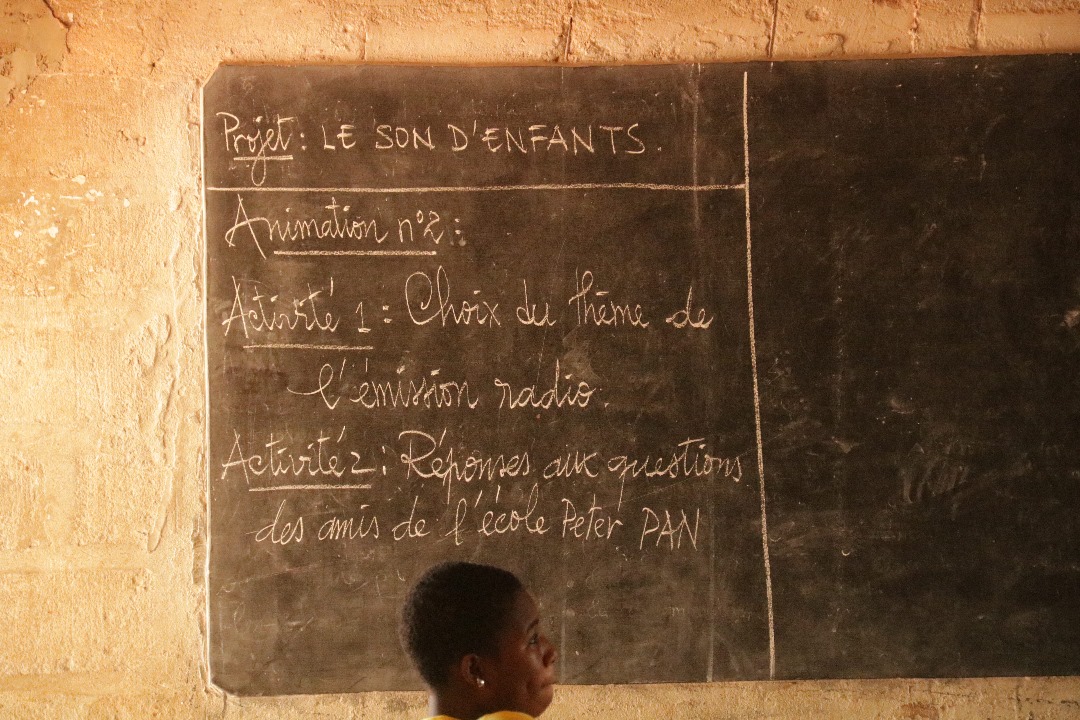 Projet : LE SON D'ENFANTS.
Animation n°2 :
Activité 1 : Choix du thème de
l'émission radio.
Activité 2 : Réponses aux questions
des amis de l'école Peter PAN